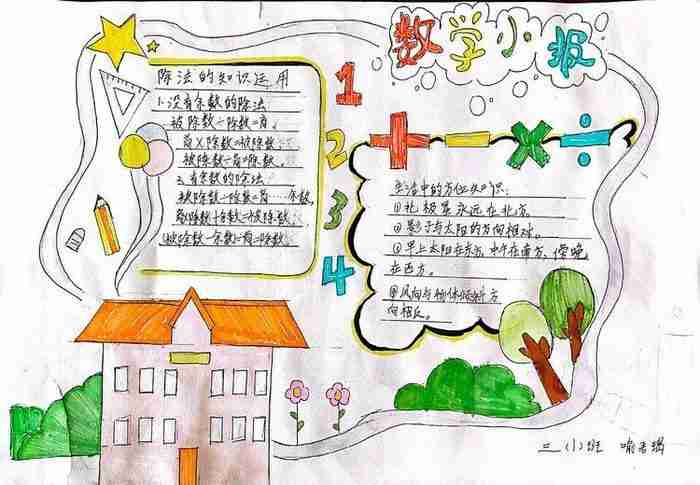 数学小报
除法的知识运用
1.没有余数的除法
被除数÷除数=商。
商×除数=被除数
被除数÷商=除数
2.有余数的除法
被除数÷除数=商……余数
商×除数+余数=被除数
(被除数-余数)÷商=除数
1
2
3
4
+ - × ÷
生活中的方位知识:
①北极星永远在北方。
②影子与太阳的方向相对。
③早上太阳在东方,中午在南方,傍晚
在西方。
④风向与物体倾斜方
向相反。
三(1)班